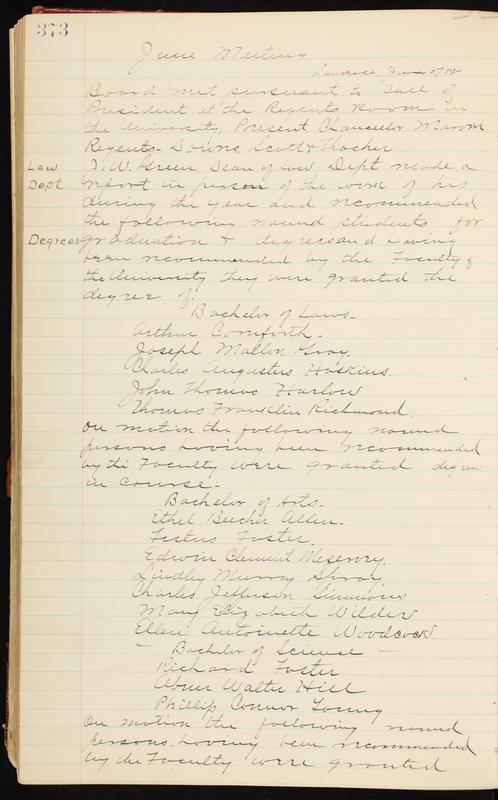 373
June Meeting
Lawrence, June
Board met pursuant to call of
President at the Regents Room in
the University, Present Chancelor Marvin
Regents- Downs, Scott & Thacher
Law
Dept
J. W. Green, Dean of Law Dept made a
report in person of the work of his
during the year and recommeaded
the following named students for
Degrees
graduation & degrees and having
been recommended by the Faculty of
the University they were granted the
degree of.
Bachelor of Laws-
Arthur Cornforth.
Joseph Mallon Gray.
Charles Augustus Hoskins.
John Thomas Harlow
Thomas Franklin Richmond.
On motion the following named
persons having been recommended
by the Faculty were granted degrees
in course:-
Bachelor of Arts.
Ethel Beecher Allen.
Festus Foster.
Edwin Clement Meservey.
Lindley Murray Spray,
Charles Jefferson Simmons
Mary Elizabeth Wilder
Ellen Antoinette Woodcock.
- Bachelor of Science -
Richard Foster
Abner Walter Hill
Phillip Connor Young
On motion the following named
persons having been recommended
by the Faculty were granted